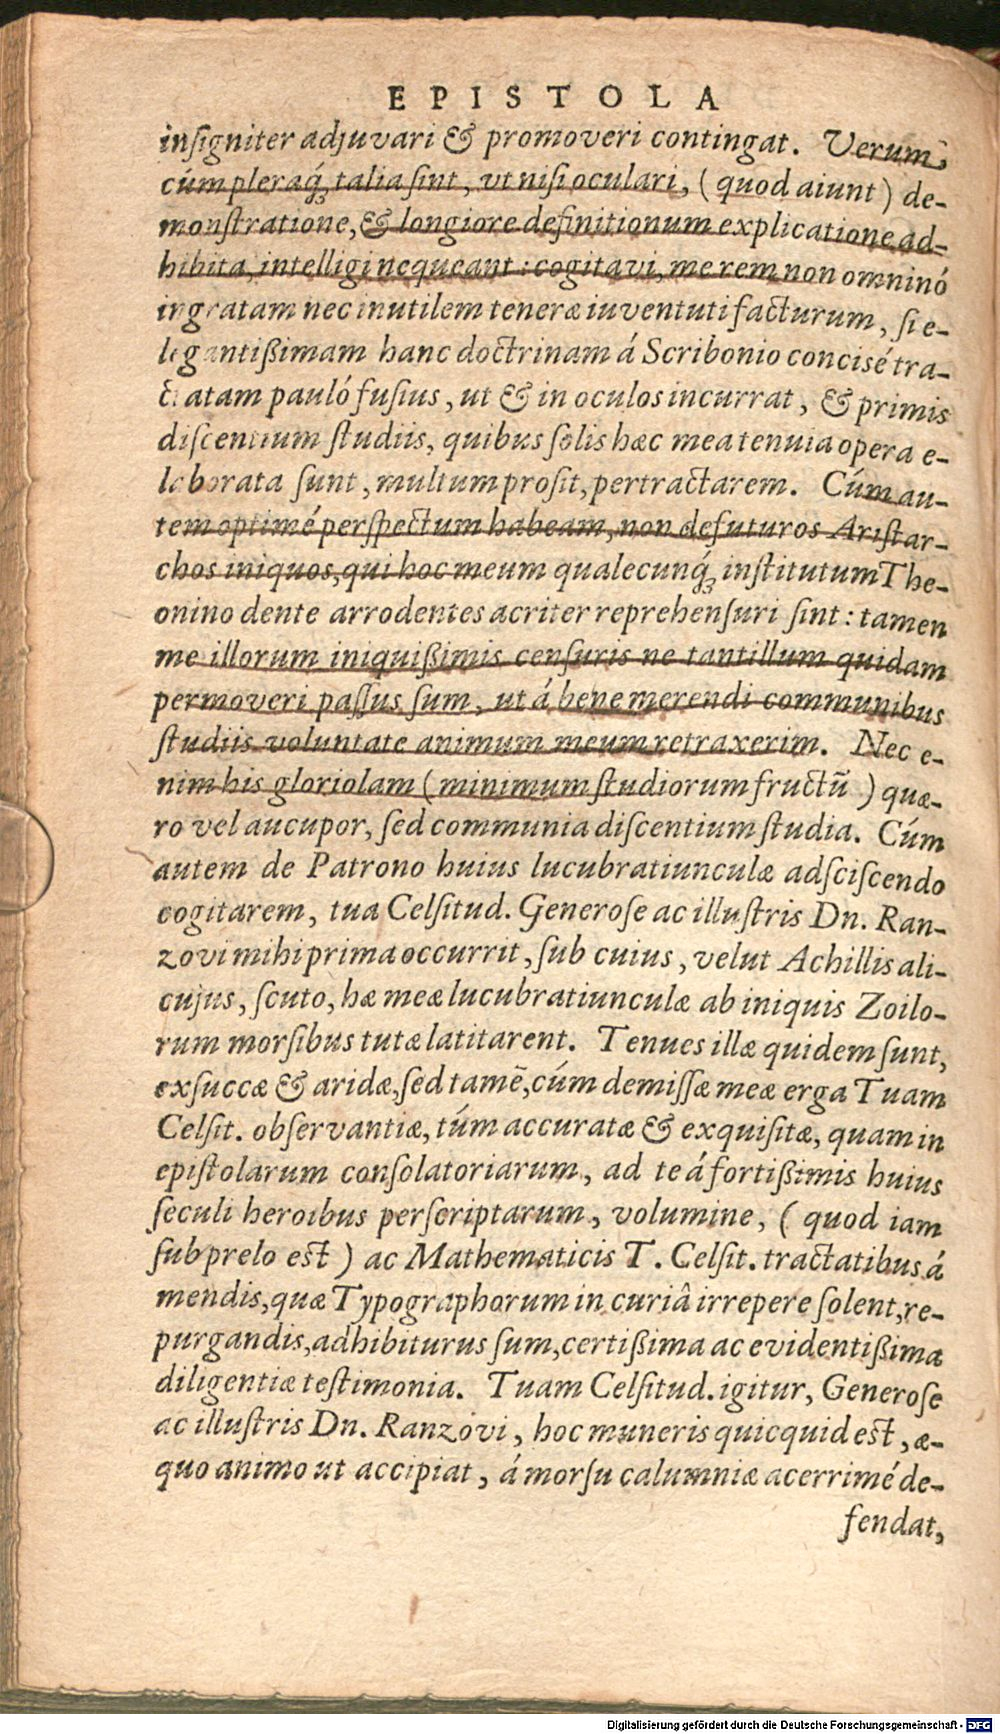 EPISTOLA
inſigniter adjuvari & promoveri contingat. Verum,
cúm pleraq́; talia ſint, vt niſi oculari, (quod aiunt) de-
monſtratione, & longiore definitionum explicatione ad-
hibita, intelligi nequeant: cogitavi, me rem non omninó
ingratam nec inutilem teneræ iuventuti facturum, ſi e-
legantißimam hanc doctrinam á Scribonio concisé tra-
ctatam pauló fusius, ut & in oculos incurrat, & primis
diſcentium ſtudiis, quibus ſolis hæc mea tenuia opera e-
laborata ſunt, multum proſit, pertractarem. Cúm au-
tem optimé perſpectum habeam, non defuturos Ariſtar-
chos iniquos, qui hoc meum qualecunq́; inſtitutum The-
onino dente arrodentes acriter reprehenſuri ſint: tamen
me illorum iniquißimis cenſuris ne tantillum quidam
permoveri paſſus ſum, ut á bene merendi communibus
ſtudiis voluntate animum meum retraxerim. Nec e-
nim his gloriolam (minimum ſtudiorum fructū) quæ-
ro vel aucupor, ſed communia diſcentium ſtudia. Cúm
autem de Patrono huius lucubratiunculæ adſciſcendo
cogitarem, tua Celſitud. Generoſe ac illuſtris Dn. Ran-
zovi mihi prima occurrit, ſub cuius, velut Achillis ali-
cujus, ſcuto, hæ meæ lucubratiunculæ ab iniquis Zoilo-
rum morſibus tutæ latitarent. Tenues illæ quidem ſunt,
exſuccæ & aridæ, ſed tamē, cúm demiſſæ meæ erga Tuam
Celſit. obſervantiæ, túm accuratæ & exquiſitæ, quam in
epiſtolarum conſolatoriarum, ad te á fortißimis huius
ſeculi heroibus perſcriptarum, volumine, (quod iam
ſub prelo eſt) ac Mathematicis T. Celſit. tractatibus á
mendis, quæ Typographorum incuriâ irrepere ſolent, re-
purgandis, adhibiturus ſum, certißima ac evidentißima
diligentiæ teſtimonia. Tuam Celſitud. igitur, Generoſe
ac illuſtris Dn. Ranzovi, hoc muneris quicquid eſt, æ-
quo animo ut accipiat, á morſu calumniæ acerrimé de-
fendat,
Digitalisierung gefördert durch die Deutsche Forschungsgemeinschaft - DFG